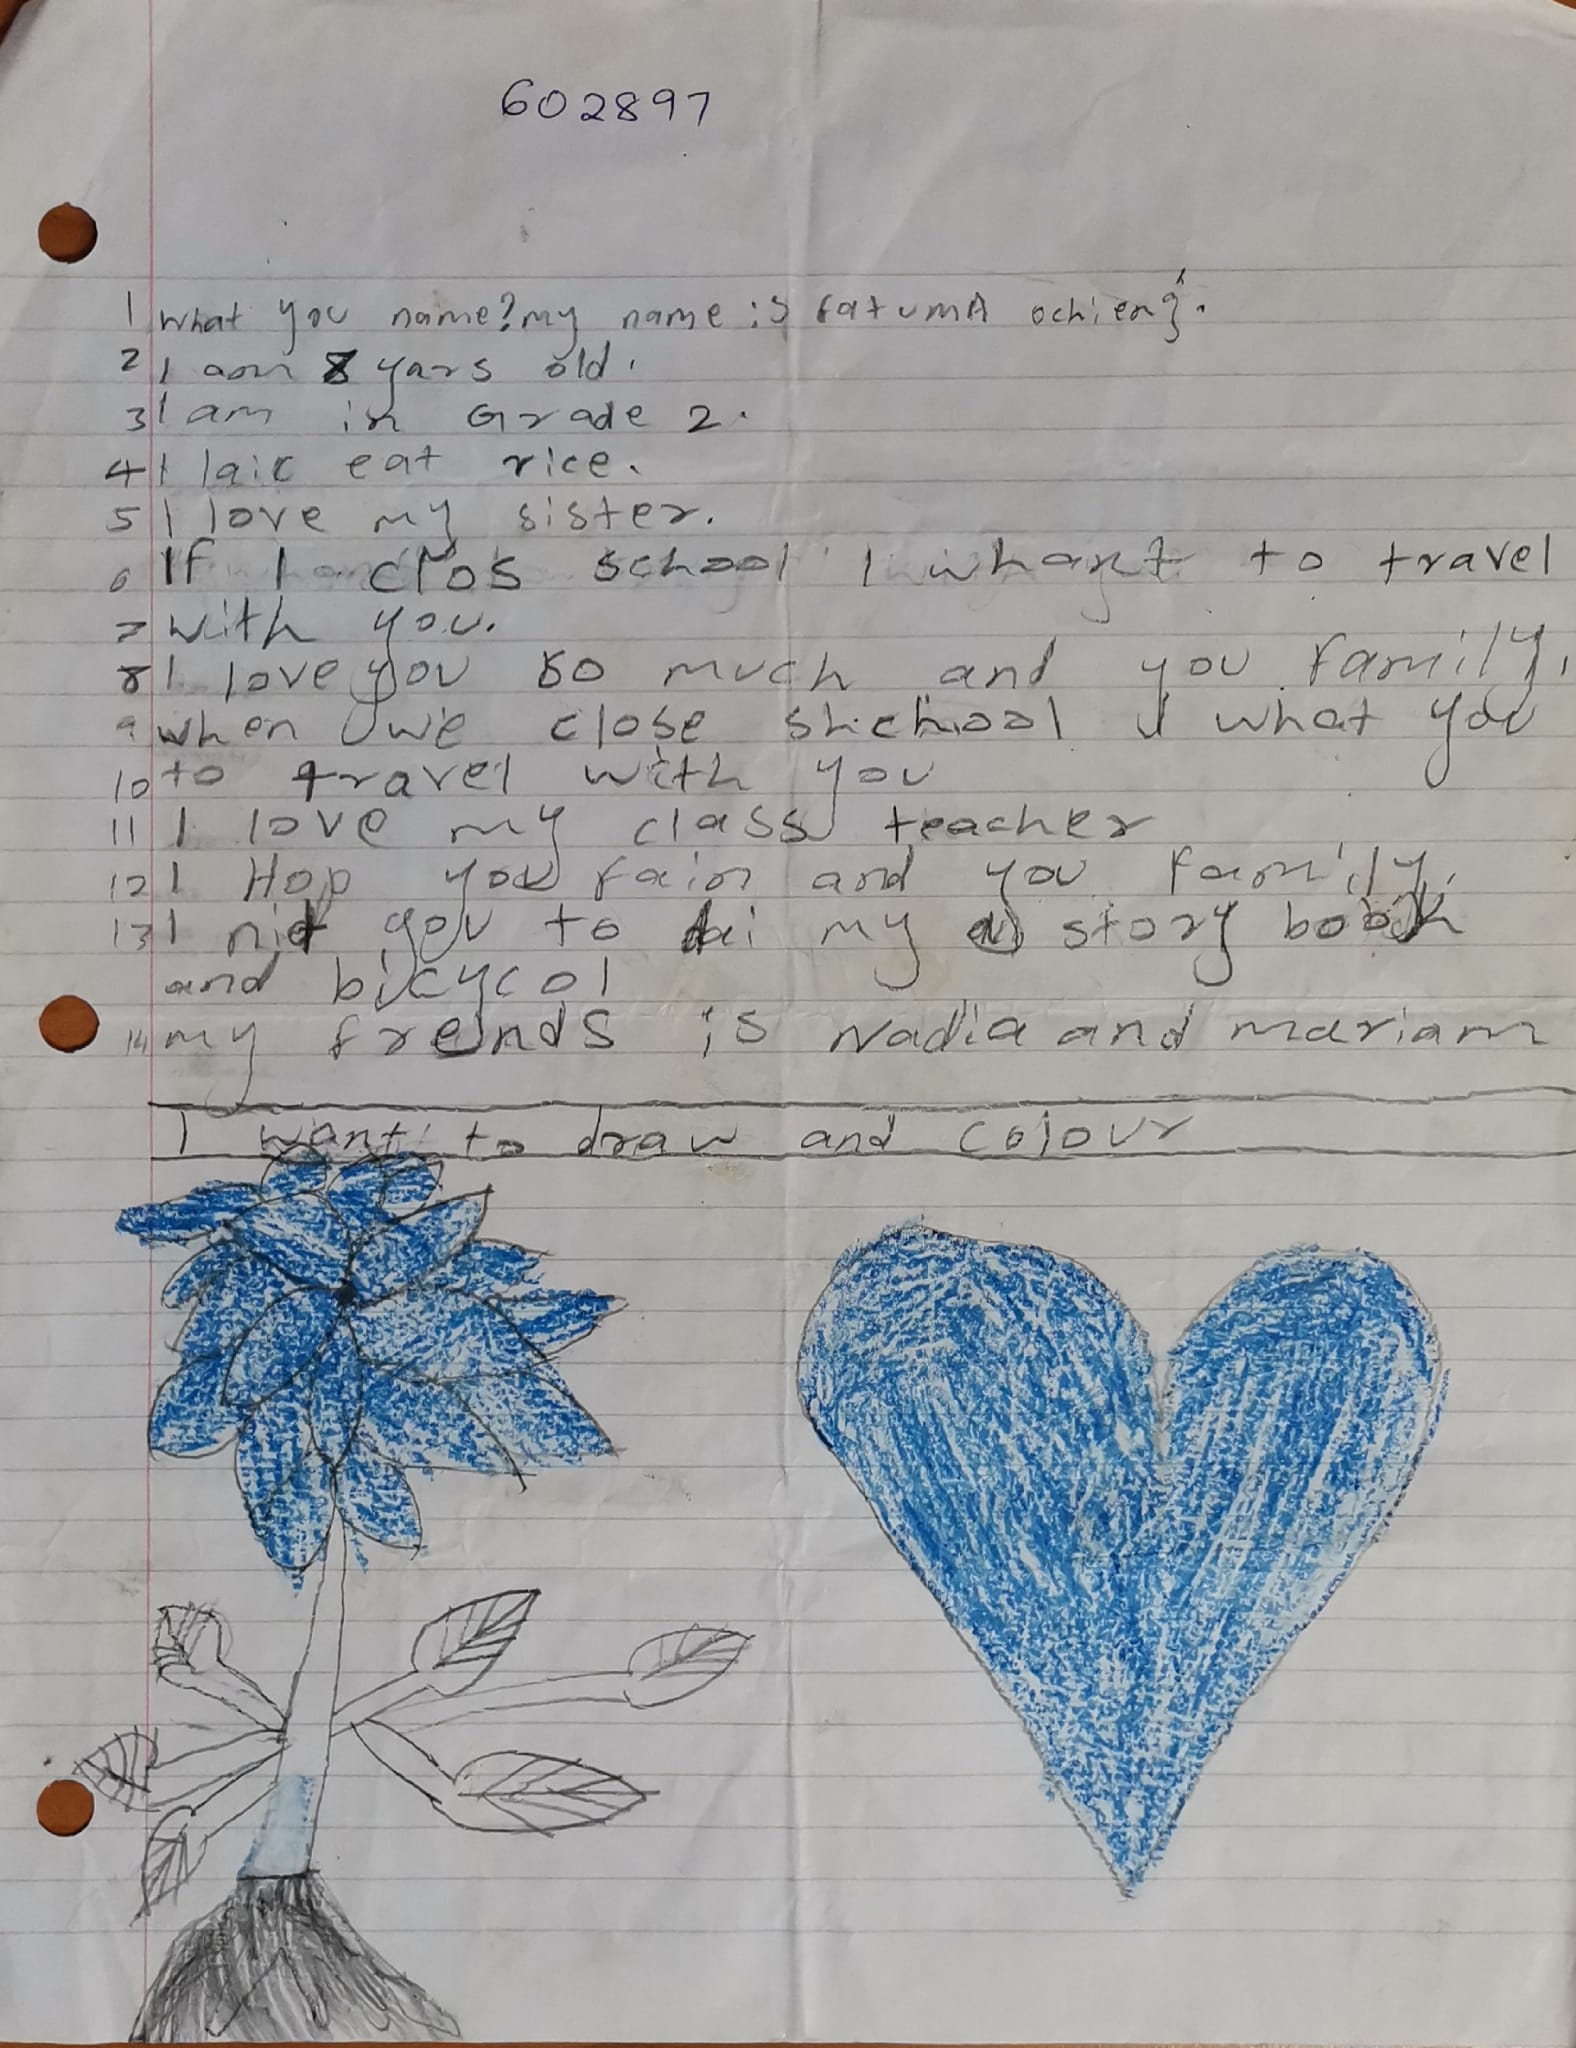 602897
1 What you name? my name is fatumA ochieng'.
2 I am 8 yars old.
3 I am in Grade 2.
4 I laic eat rice.
5 I love my sister.
6 If I clos school I whant to travel
7 with you.
8 I love you so much and you family.
9 when we close shchool I what you
10 to travel with you
11 I love my class teacher
12 I Hop you fain and you family.
13 I nid you to bai my story book
and bicycol
14 my frends is Nadia and mariam
I want to draw and colour